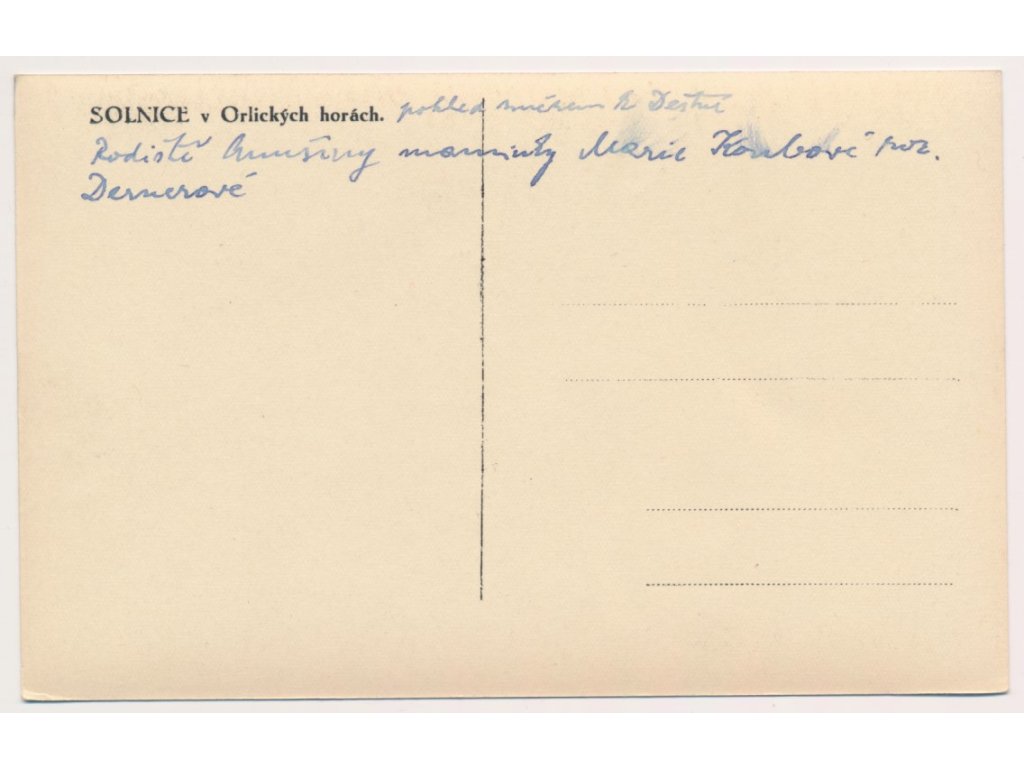 SOLNICE v Orlických horách. pohled směrem k Deštné
Rodiště Anušiny maminky Marie Koubové roz.
Dernerové